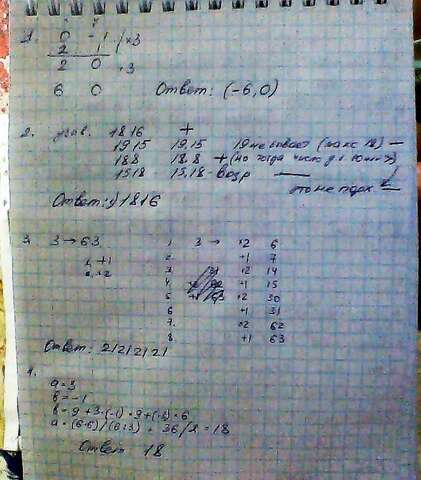 x y
1. 0 -1 | ×3
2 1
2 0 ×3
6 0 Ответ: (-6,0)
2. 1816 +
1915 19,15 19 не бывает (макс 18) —
188 18,8 +
1518 15,18 - возр —
это не парк —
Ответ: 1) 1816
3. 3 → 63 1 3 → ×2 6
1. +1 2 +1 7
2. ×2 3 ×2 14
4 +1 15
5 ×2 30
6 +1 31
7. ×2 62
8 +1 63
Ответ: 21212121
4.
a = 3
b = -1
b = 9 + 3·(-1) = 9 + (-3) = 6
a = (6·6)/(6:3) = 36/2 = 18
Ответ 18